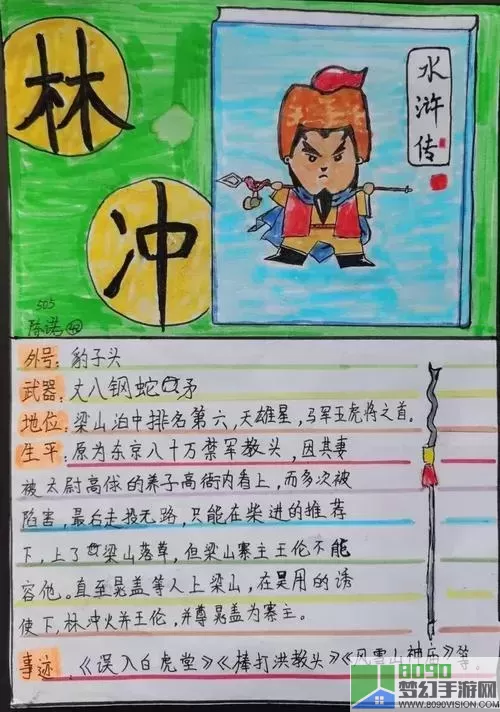 林
冲
水浒传
505
陈诺㊷
外号：豹子头
武器：丈八钢蛇矛
地位：梁山泊中排名第六，天雄星，马军五虎将之首。
生平：原为东京八十万禁军教头，因其妻
被太尉高俅的养子高衙内看上，而多次被
陷害，最后走投无路，只能在柴进的推荐
下，上了梁山落草，但梁山寨主王伦不能
容他。直至晁盖等人上梁山，在吴用的诱
使下，林冲火并王伦，并尊晁盖为寨主。
事迹：《误入白虎堂》《棒打洪教头》《风雪山神庙》等。
8090
梦幻手游网
WWW.8090VISION.COM